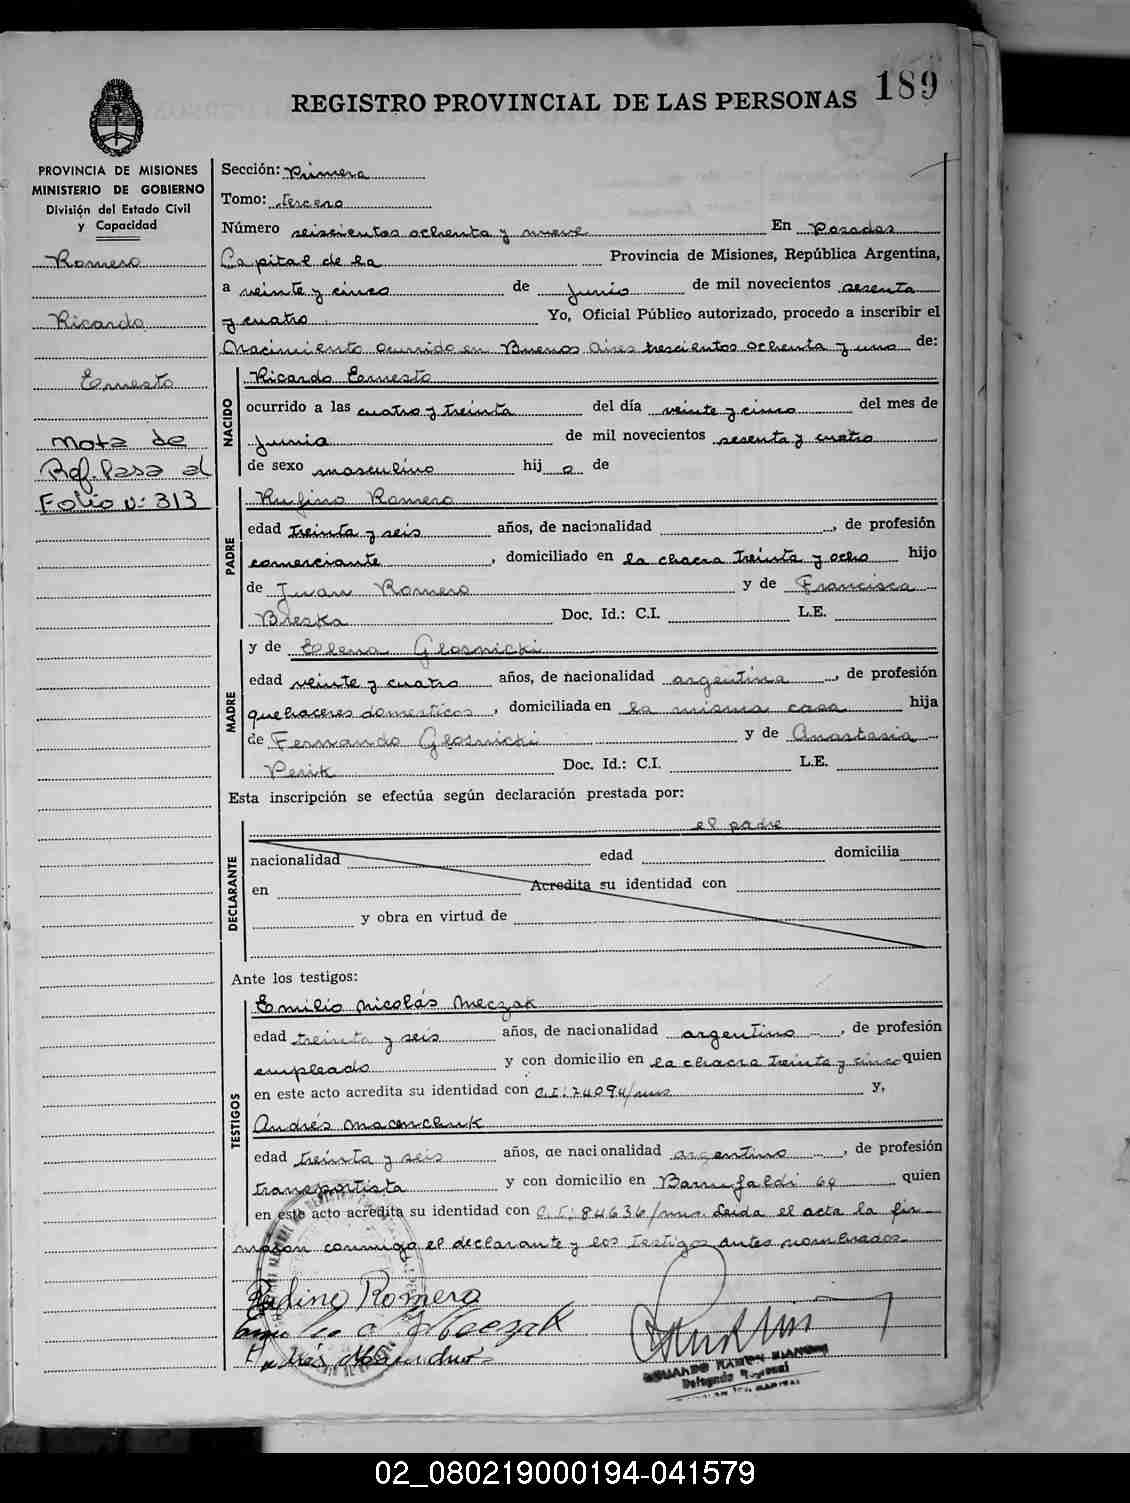 189
REGISTRO PROVINCIAL DE LAS PERSONAS
PROVINCIA DE MISIONES
MINISTERIO DE GOBIERNO
División del Estado Civil
y Capacidad
Romero
Ricardo
Ernesto
Nota de
Ref. Pasa al
Folio N: 313
Sección: Primera
Tomo: tercero
Número seiscientos ochenta y nueve En Posadas
Capital de la Provincia de Misiones, República Argentina,
a veinte y cinco de Junio de mil novecientos sesenta
y cuatro Yo, Oficial Público autorizado, procedo a inscribir el
Nacimiento ocurrido en Buenos Aires trescientos ochenta y uno de:
NACIDO
Ricardo Ernesto
ocurrido a las cuatro y treinta del día veinte y cinco del mes de
Junio de mil novecientos sesenta y cuatro
de sexo masculino hij o de
PADRE
Rufino Romero
edad treinta y seis años, de nacionalidad , de profesión
comerciante , domiciliado en la chacra treinta y ocho hijo
de Juan Romero y de Francisca
Breska Doc. Id.: C.I. L.E.
MADRE
y de Elena Glosnicki
edad veinte y cuatro años, de nacionalidad argentina , de profesión
quehaceres domesticos , domiciliada en la misma casa hija
de Fernando Glosnicki y de Anastasia
Perik Doc. Id.: C.I. L.E.
Esta inscripción se efectúa según declaración prestada por:
DECLARANTE
el padre
nacionalidad edad domicilia
en Acredita su identidad con
y obra en virtud de
Ante los testigos:
TESTIGOS
Emilio Nicolás Meczak
edad treinta y seis años, de nacionalidad argentino , de profesión
empleado y con domicilio en la chacra treinta y cinco quien
en este acto acredita su identidad con C.I: 74094/mns y,
Andrés Macnchuk
edad treinta y seis años, de nacionalidad argentino , de profesión
transportista y con domicilio en Barrufaldi 64 quien
en este acto acredita su identidad con C.I: 84636/mns. Leida el acta la fir
maron conmigo el declarante y los testigos antes nombrados
Romero
EDUARDO RAMON
Delegado Regional
02_080219000194-041579